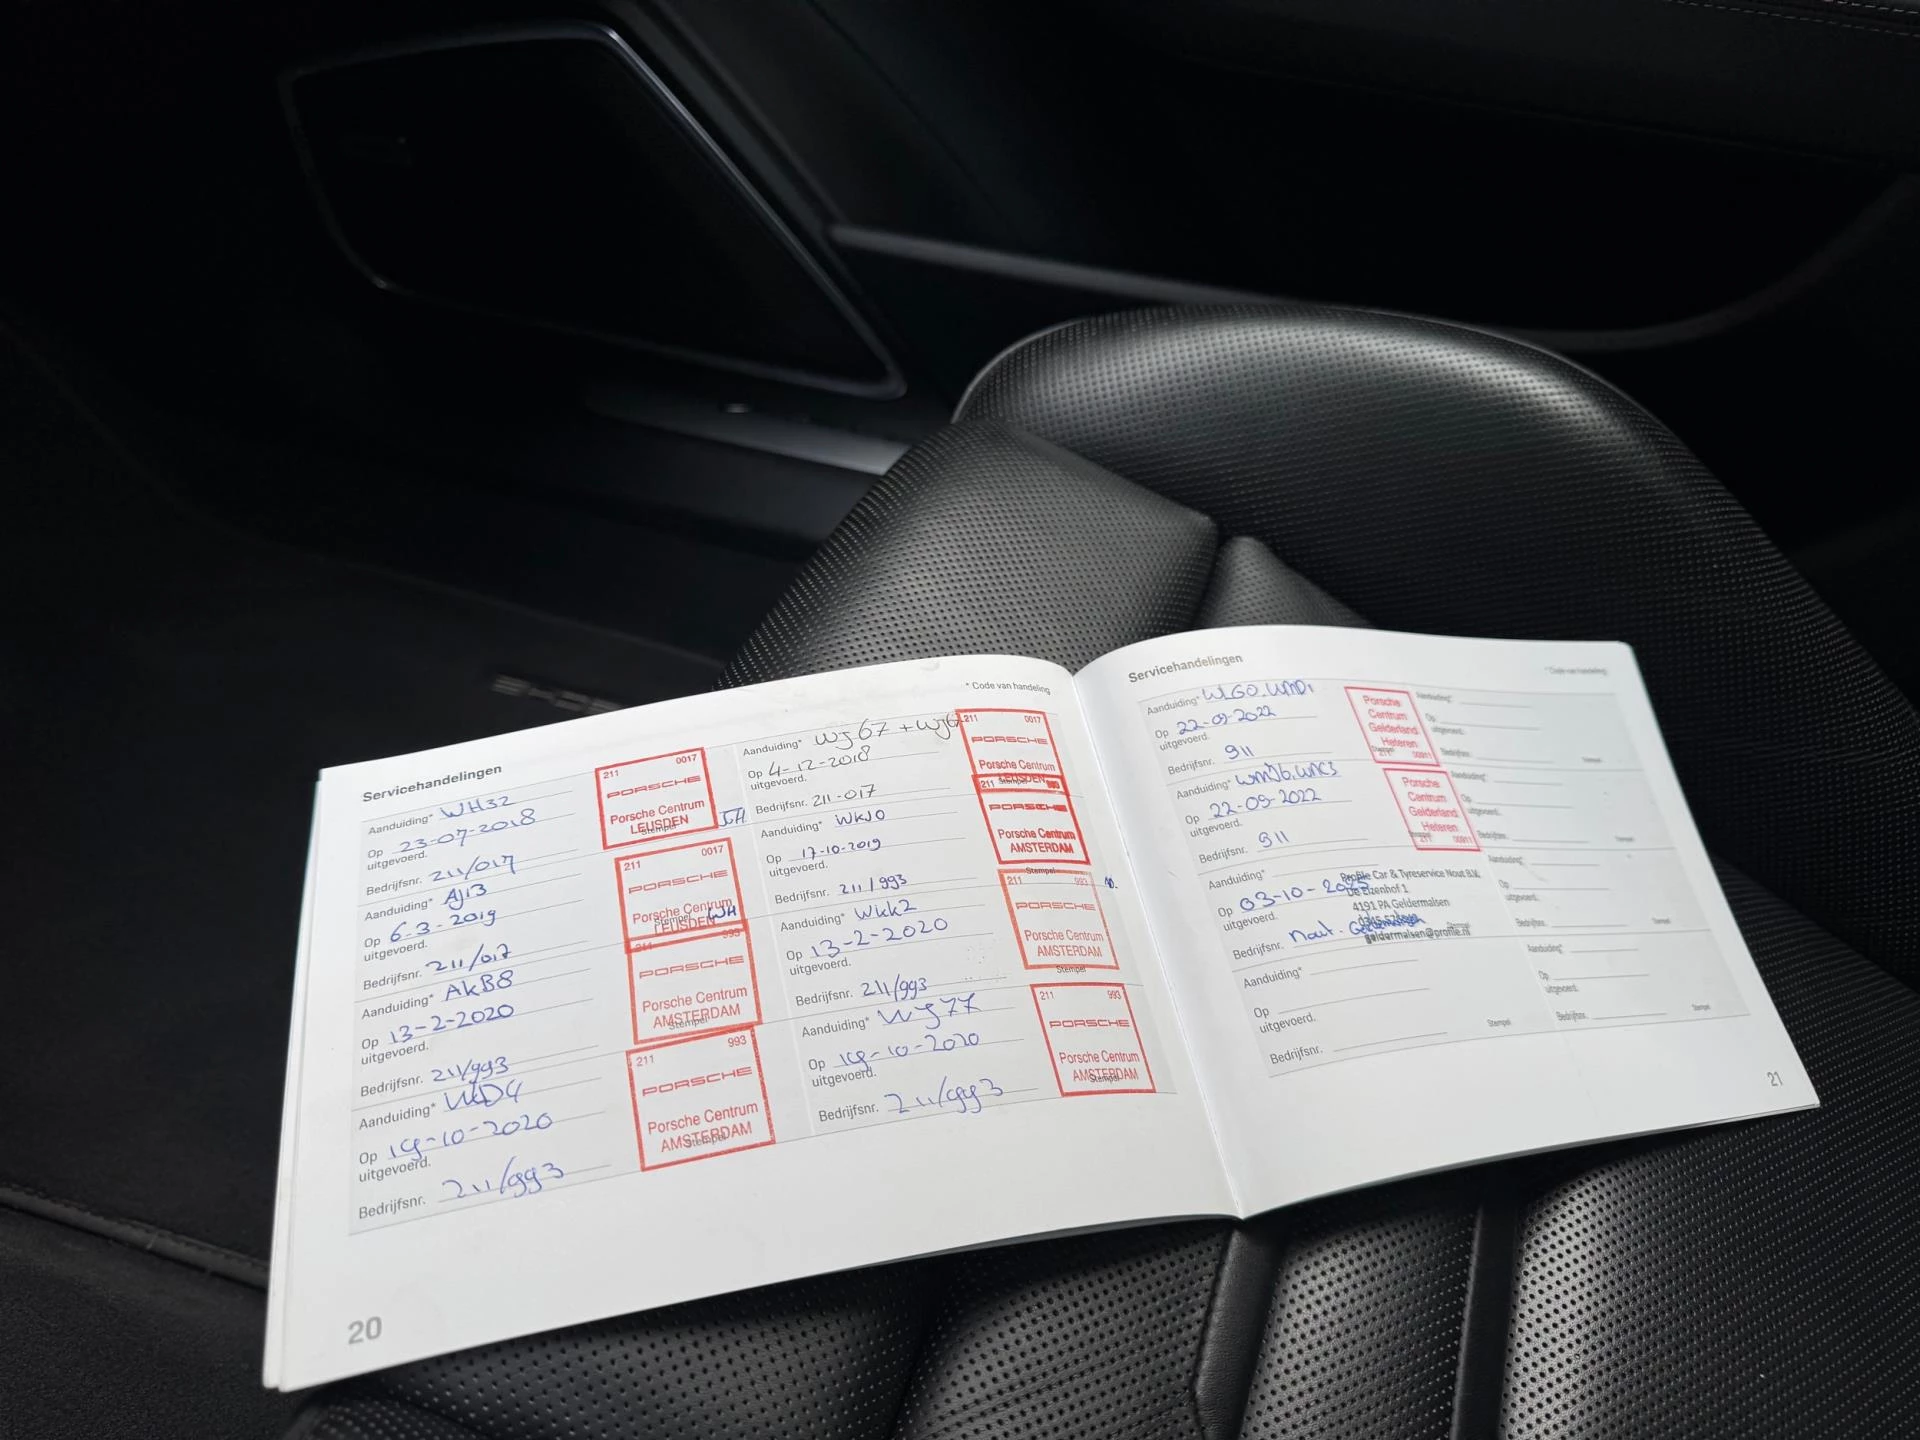 Servicehandelingen
* Code van handeling
Aanduiding* WH32
Op 23-07-2018
uitgevoerd.
Bedrijfsnr. 211/017
211 0017
PORSCHE
Porsche Centrum
LEUSDEN
Stempel
JH
Aanduiding* AJ13
Op 6-3-2019
uitgevoerd.
Bedrijfsnr. 211/017
211 0017
PORSCHE
Porsche Centrum
LEUSDEN
Stempel
WH
Aanduiding* AkB8
Op 13-2-2020
uitgevoerd.
Bedrijfsnr. 211/993
211 993
PORSCHE
Porsche Centrum
AMSTERDAM
Stempel
Aanduiding* WD4
Op 19-10-2020
uitgevoerd.
Bedrijfsnr. 211/993
211 993
PORSCHE
Porsche Centrum
AMSTERDAM
Stempel
Aanduiding* WJ67 + WJ6
Op 4-12-2018
uitgevoerd.
Bedrijfsnr. 211-017
211 0017
PORSCHE
Porsche Centrum
LEUSDEN
Stempel
Aanduiding* WKJ0
Op 17-10-2019
uitgevoerd.
Bedrijfsnr. 211/993
211 993
PORSCHE
Porsche Centrum
AMSTERDAM
Stempel
Aanduiding* Wkk2
Op 13-2-2020
uitgevoerd.
Bedrijfsnr. 211/993
211 993
PORSCHE
Porsche Centrum
AMSTERDAM
Stempel
Aanduiding* WJ77
Op 19-10-2020
uitgevoerd.
Bedrijfsnr. 211/993
211 993
PORSCHE
Porsche Centrum
AMSTERDAM
Stempel
20
Servicehandelingen
* Code van handeling
Aanduiding* WLG0.WMD1
Op 22-09-2022
uitgevoerd.
Bedrijfsnr. 911
Porsche
Centrum
Gelderland
Heteren
211 00911
Stempel
Aanduiding*
Op 22-09-2022
uitgevoerd.
Bedrijfsnr. 911
Porsche
Centrum
Gelderland
Heteren
211 00911
Stempel
Aanduiding*
Op 03-10-2025
uitgevoerd.
Bedrijfsnr. Nout - Geldermalsen
Profile Car & Tyreservice Nout B.V.
De Elzenhof 1
4191 PA Geldermalsen
geldermalsen@profile.nl
Stempel
Aanduiding*
Op
uitgevoerd.
Bedrijfsnr.
Stempel
Aanduiding*
Op
uitgevoerd.
Bedrijfsnr.
Stempel
Aanduiding*
Op
uitgevoerd.
Bedrijfsnr.
Stempel
Aanduiding*
Op
uitgevoerd.
Bedrijfsnr.
Stempel
Aanduiding*
Op
uitgevoerd.
Bedrijfsnr.
Stempel
21